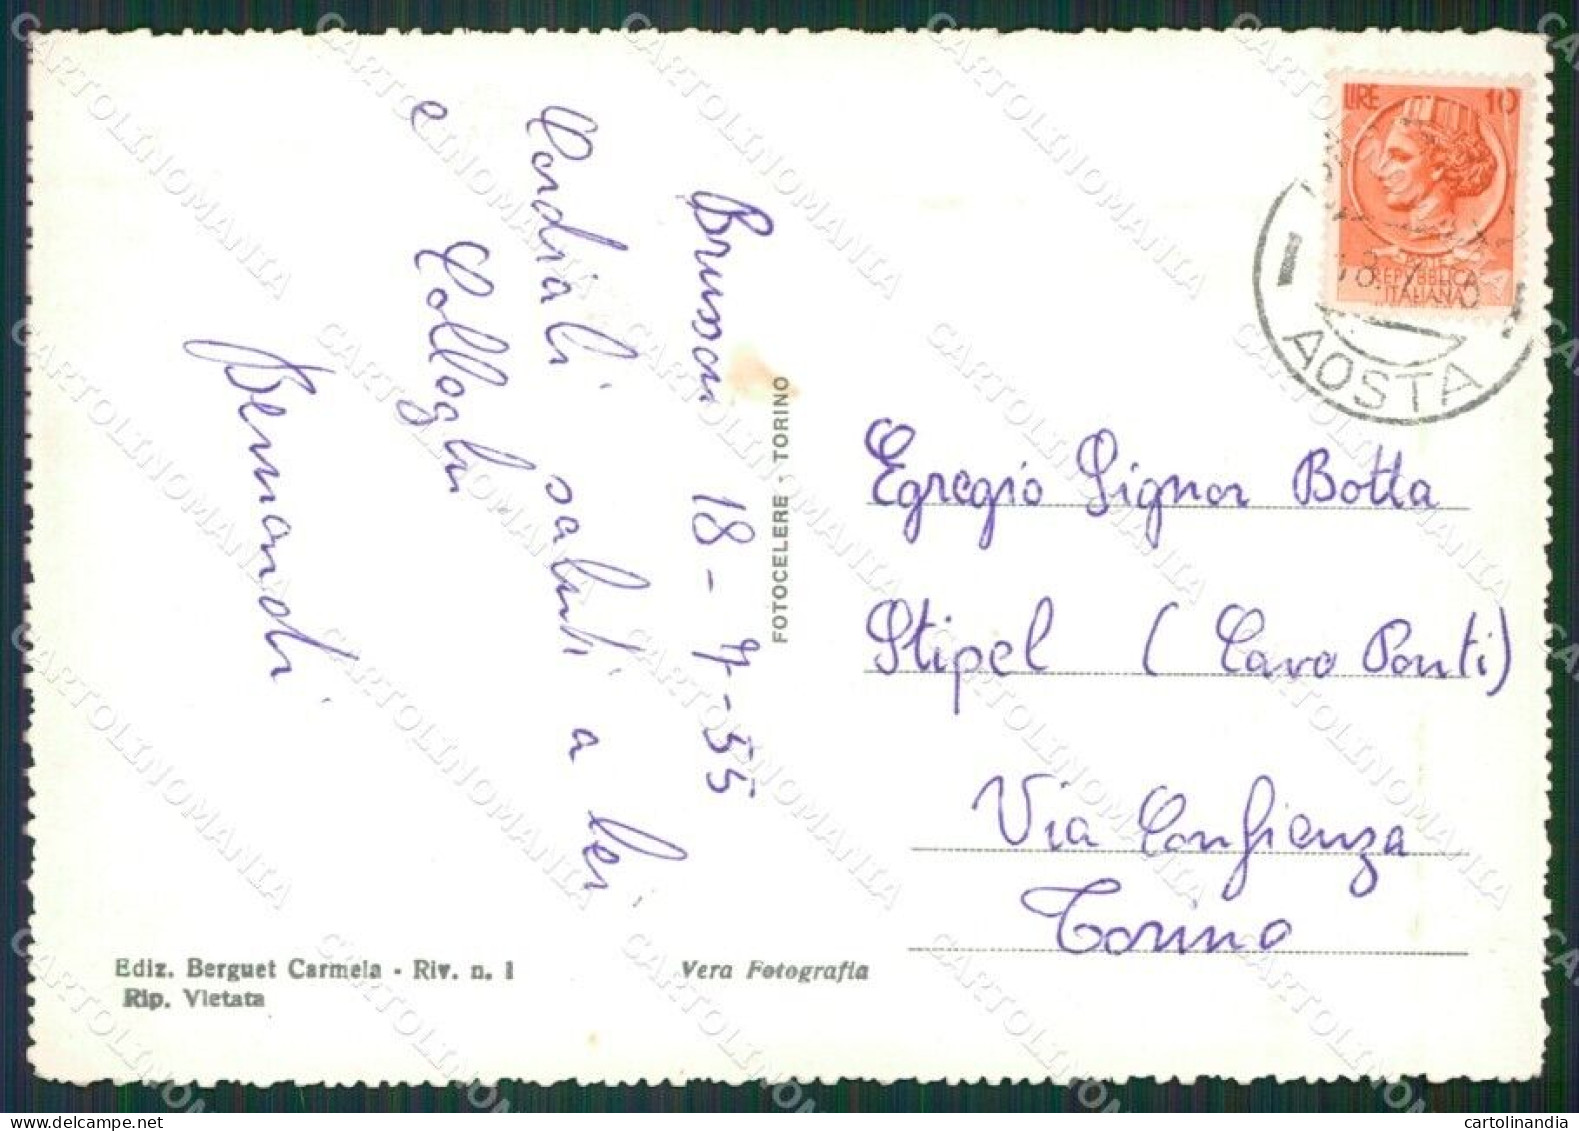 Brusson 18-7-55
Cordiali saluti a lei
e Colleghi
Bernardi
FOTOCELERE - TORINO
Ediz. Berguet Carmela - Riv. n. 1
Rip. Vietata
Vera Fotografia
LIRE 10
REPUBBLICA
ITALIANA
AOSTA
Egregio Signor Botta
Stipel ( Cavo Ponti)
Via Confienza
Torino
CARTOLINOMANIA
cartolinandia